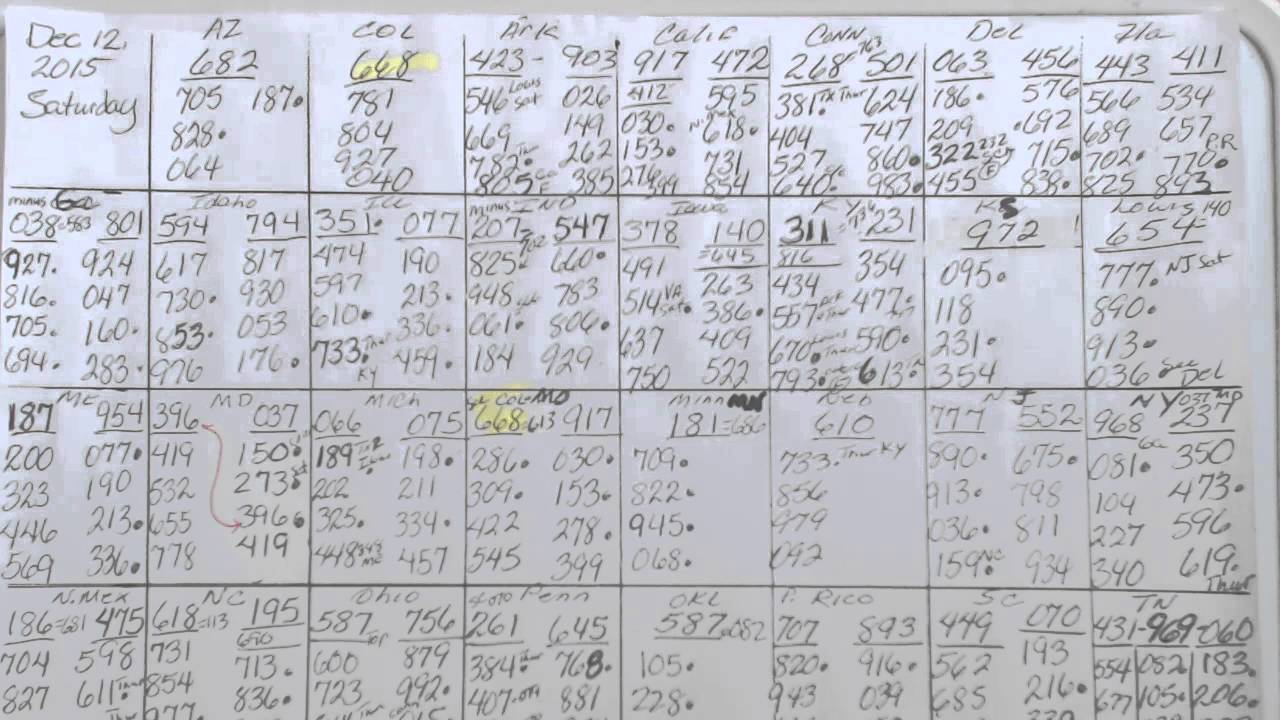 Dec 12, AZ COL Ark Calif Conn Del Fla
2015 682 668 423- 903 917 472 268 763 501 063 456 443 411
Saturday 705 187. 781 546 Louis Sat 026 412 595 381. TX Thur 624 186. 576 566 534
828. 804 669 149 030. N.Mex 618. 404 747 209 .692 689 657
064 927 782. Thur 262 153. 731 527 860. 322 232 715. 702. 770. P.R
040 805 385 276 399 854 640. 983. 455 838. 825 893
minus Idaho Ill minus IND Iowa KY KS Louis 140
038=583 801 594 794 351. 077 207 547 378 140 311 231 972 654
927. 924 617 817 474 190 825. 660. 491 =645 816 354 095. 777. NJ Sat
816. 047 730. 930 597 213. 948 783 514 VA Sat. 263 434 477. 118 890.
705. 160. 853. 053 610. 336. 061. 806. 637 386. 557 Thur 590. 231. 913.
694. 283. 976 176. 733. Thur KY 459. 184 929 750 409 670. Thur 613. 354 036 See Del
522 793.
ME MD Mich Col MO Minn NJ NY
187 954 396 037 066 075 668.613 917 181=686 610 777 552 968 237
200 077. 419 150. 189 198. 286. 030. 709. 733. Thur KY 890. 675. 081. 350
323 190 532 273. 202 211 309. 153. 822. 856 913. 798 104 473.
446 213. 655 396. 325. 334. 422 278. 945. 979 036. 811 227 596
569 336. 778 419 448 457 545 399 068. 092 159. NC 934 340 619. Thur
N.Mex NC Ohio Penn OKL P. Rico SC TN
186=681 475 618=113 195 587 756 261 645 587=082 707 893 449 070 431-969-060
704 598 731 690 600 879 384. Thur 768. 105. 820. 916. 562 193 554 082 183.
827 611. Thur 854 713. 723 992. 407. 881 228. 943 039 685 216. 677 105. 206.
977. 836.